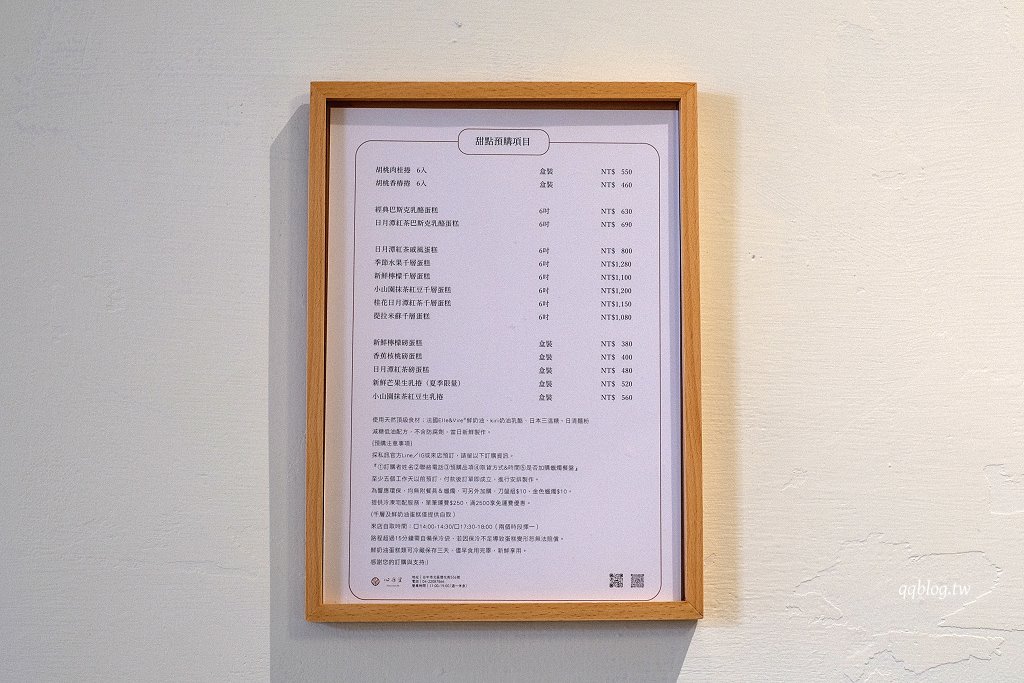 甜點預購項目
胡桃肉桂捲 6入 盒裝 NT$ 550
胡桃香椿捲 6入 盒裝 NT$ 460
經典巴斯克乳酪蛋糕 6吋 NT$ 630
日月潭紅茶巴斯克乳酪蛋糕 6吋 NT$ 690
日月潭紅茶戚風蛋糕 6吋 NT$ 800
季節水果千層蛋糕 6吋 NT$1,280
新鮮檸檬千層蛋糕 6吋 NT$1,100
小山園抹茶紅豆千層蛋糕 6吋 NT$1,200
桂花日月潭紅茶千層蛋糕 6吋 NT$1,150
提拉米蘇千層蛋糕 6吋 NT$1,080
新鮮檸檬磅蛋糕 盒裝 NT$ 380
香蕉核桃磅蛋糕 盒裝 NT$ 400
日月潭紅茶磅蛋糕 盒裝 NT$ 480
新鮮芒果生乳捲（夏季限量） 盒裝 NT$ 520
小山園抹茶紅豆生乳捲 盒裝 NT$ 560
使用天然頂級食材：法國Elle&Vire®鮮奶油、kiri奶油乳酪、日本三溫糖、日清麵粉
減糖低油配方，不含防腐劑，當日新鮮製作。
(預購注意事項)
採私訊官方Line／IG或來店預訂，請留以下訂購資訊。
『①訂購者姓名②聯絡電話③預購品項④取貨方式&時間⑤是否加購蠟燭餐盤』
至少五個工作天以前預訂，付款後訂單即成立，進行安排製作。
為響應環保，均無附餐具&蠟燭，可另外加購，刀盤組$10、金色蠟燭$10。
提供冷凍宅配服務，單筆運費$250，滿2500享免運費優惠。
(千層及鮮奶油蛋糕僅提供自取)
來店自取時間：□14:00-14:30/□17:30-18:00（兩個時段擇一）
路程超過15分鐘需自備保冷袋，若因保冷不足導致蛋糕變形恕無法賠償。
鮮奶油蛋糕類可冷藏保存三天，儘早食用完畢，新鮮享用。
感謝您的訂購與支持:)
qqblog.tw